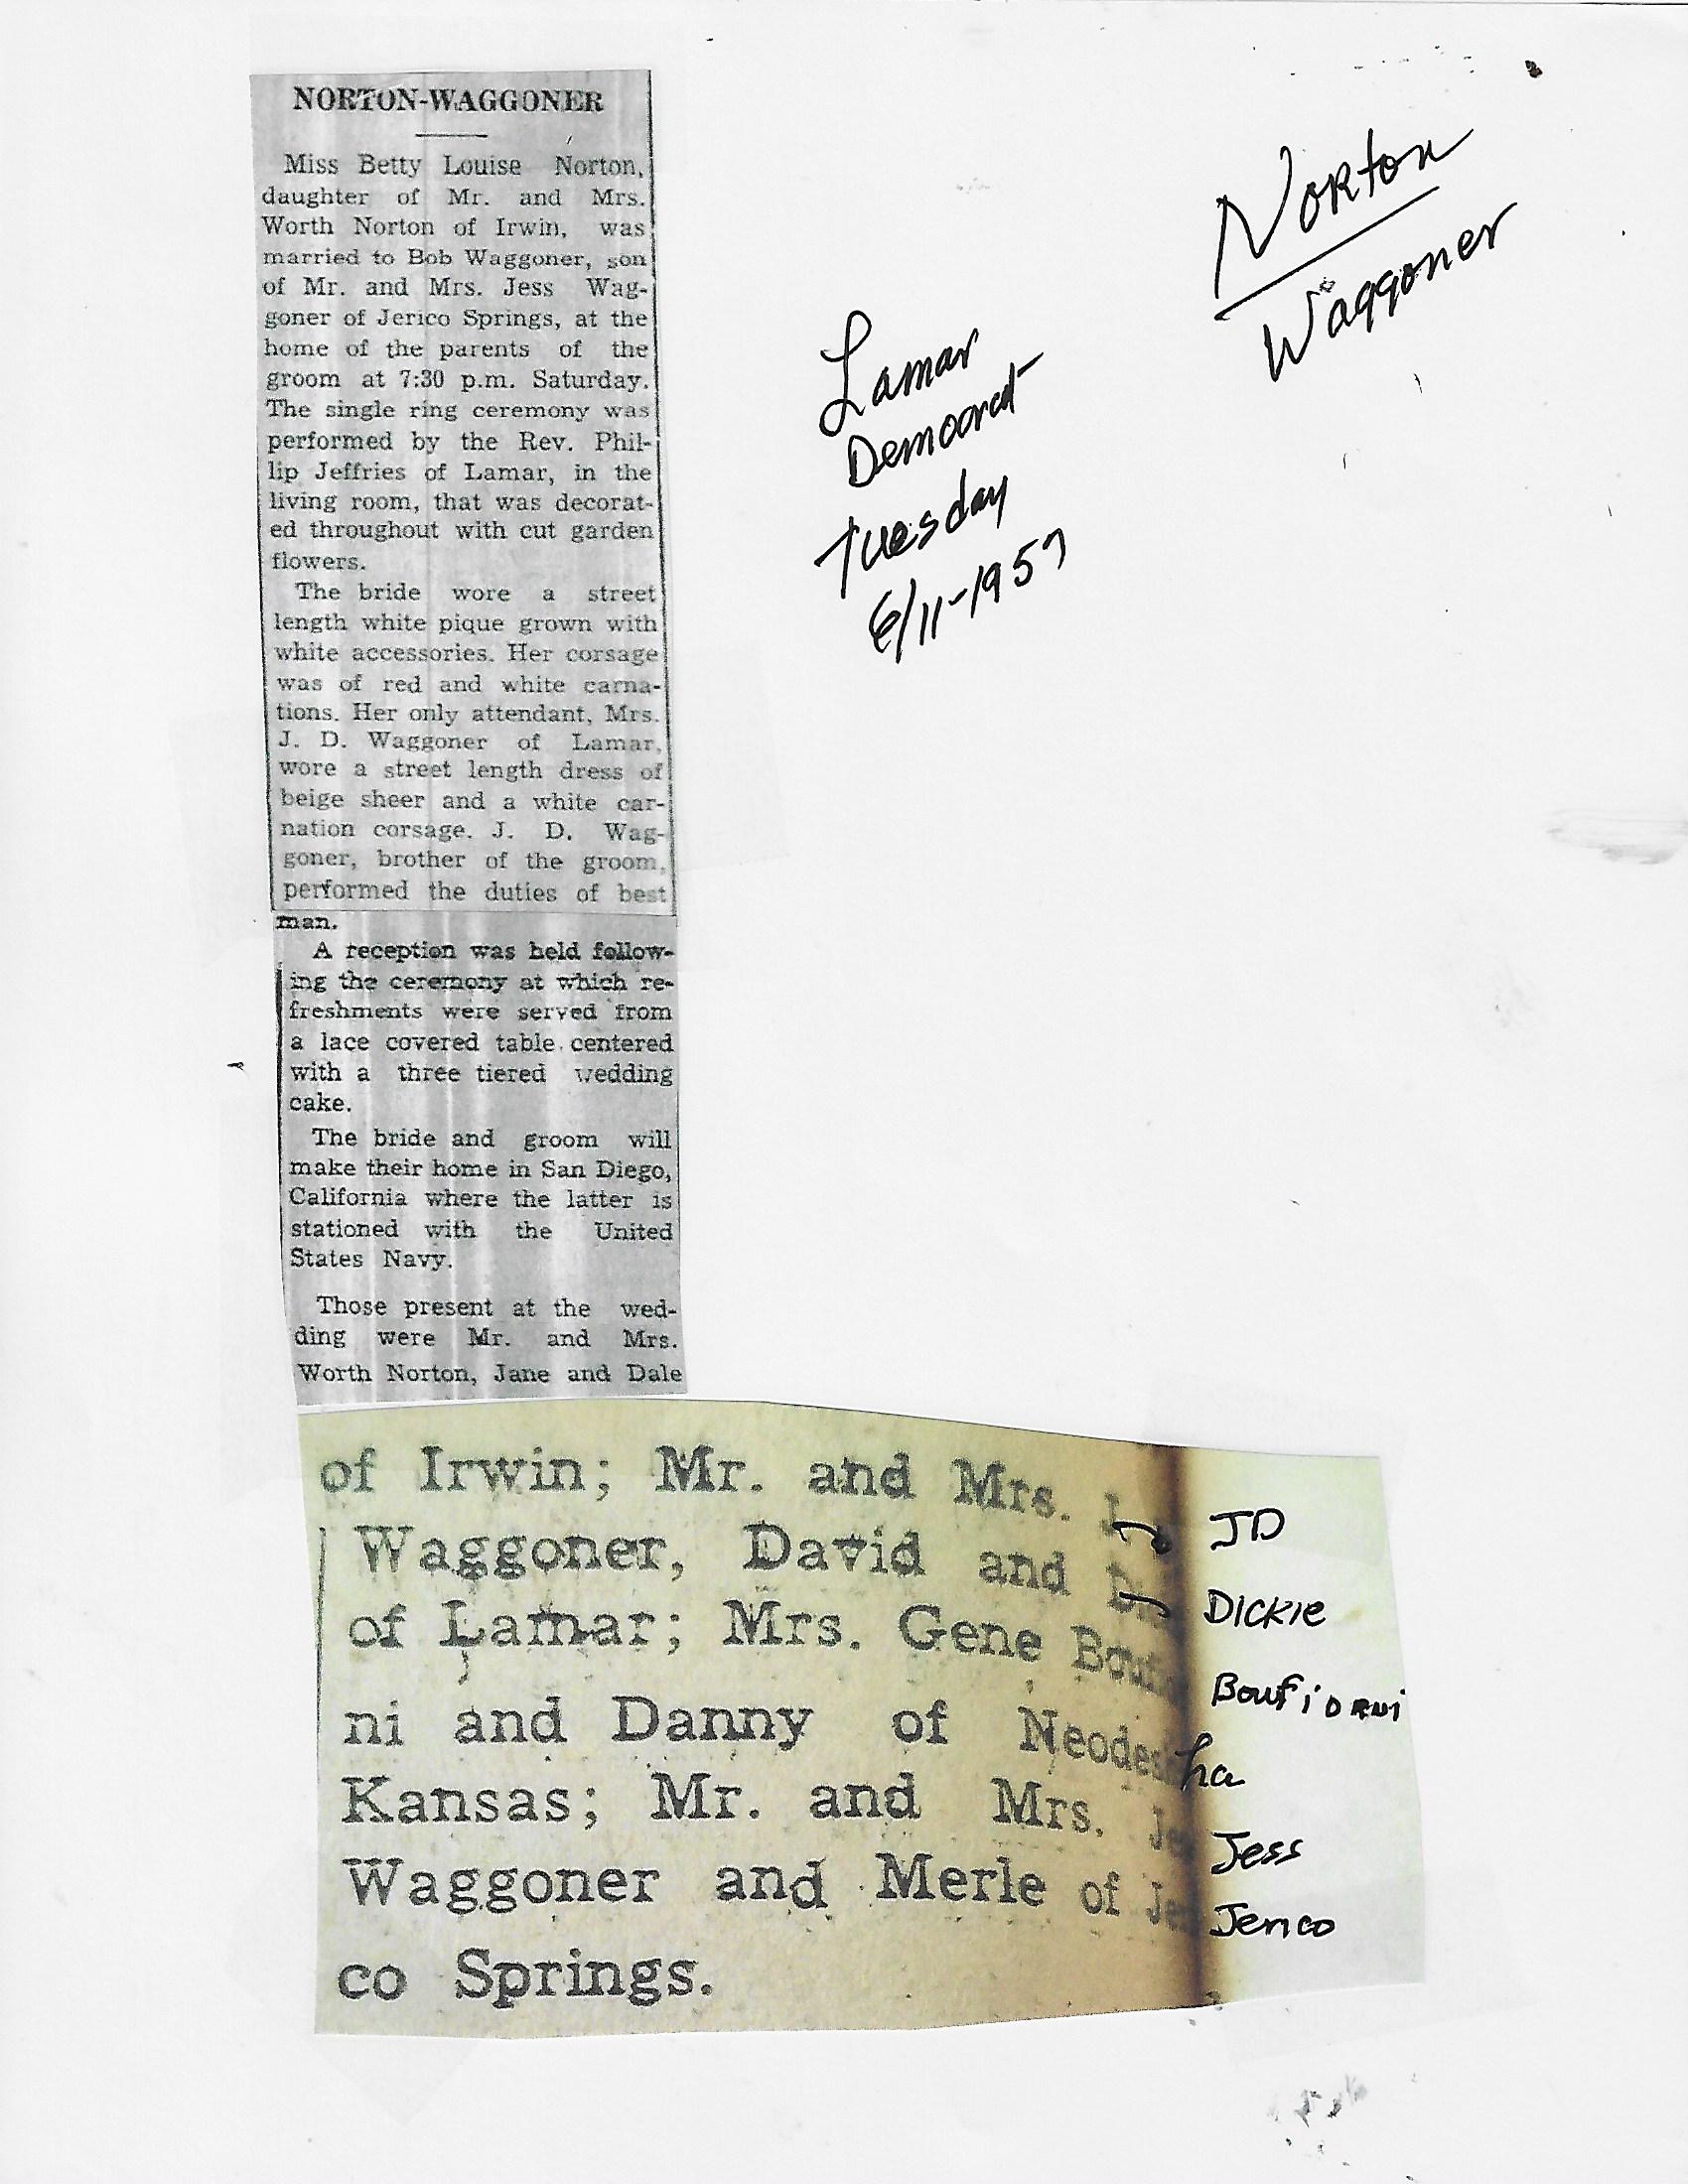 NORTON-WAGGONER
Miss Betty Louise Norton,
daughter of Mr. and Mrs.
Worth Norton of Irwin, was
married to Bob Waggoner, son
of Mr. and Mrs. Jess Wag-
goner of Jerico Springs, at the
home of the parents of the
groom at 7:30 p.m. Saturday.
The single ring ceremony was
performed by the Rev. Phil-
lip Jeffries of Lamar, in the
living room, that was decorat-
ed throughout with cut garden
flowers.
The bride wore a street
length white pique grown with
white accessories. Her corsage
was of red and white carna-
tions. Her only attendant, Mrs.
J. D. Waggoner of Lamar,
wore a street length dress of
beige sheer and a white car-
nation corsage. J. D. Wag-
goner, brother of the groom,
performed the duties of best
man.
A reception was held follow-
ing the ceremony at which re-
freshments were served from
a lace covered table centered
with a three tiered wedding
cake.
The bride and groom will
make their home in San Diego,
California where the latter is
stationed with the United
States Navy.
Those present at the wed-
ding were Mr. and Mrs.
Worth Norton, Jane and Dale
of Irwin; Mr. and Mrs. J. JD
Waggoner, David and Di DICKIE
of Lamar; Mrs. Gene Boufi Boufiorni
ni and Danny of Neodesha
Kansas; Mr. and Mrs. Je Jess
Waggoner and Merle of Je Jerico
co Springs.
Lamar
Democrat
Tuesday
6/11-1957
Norton
Waggoner